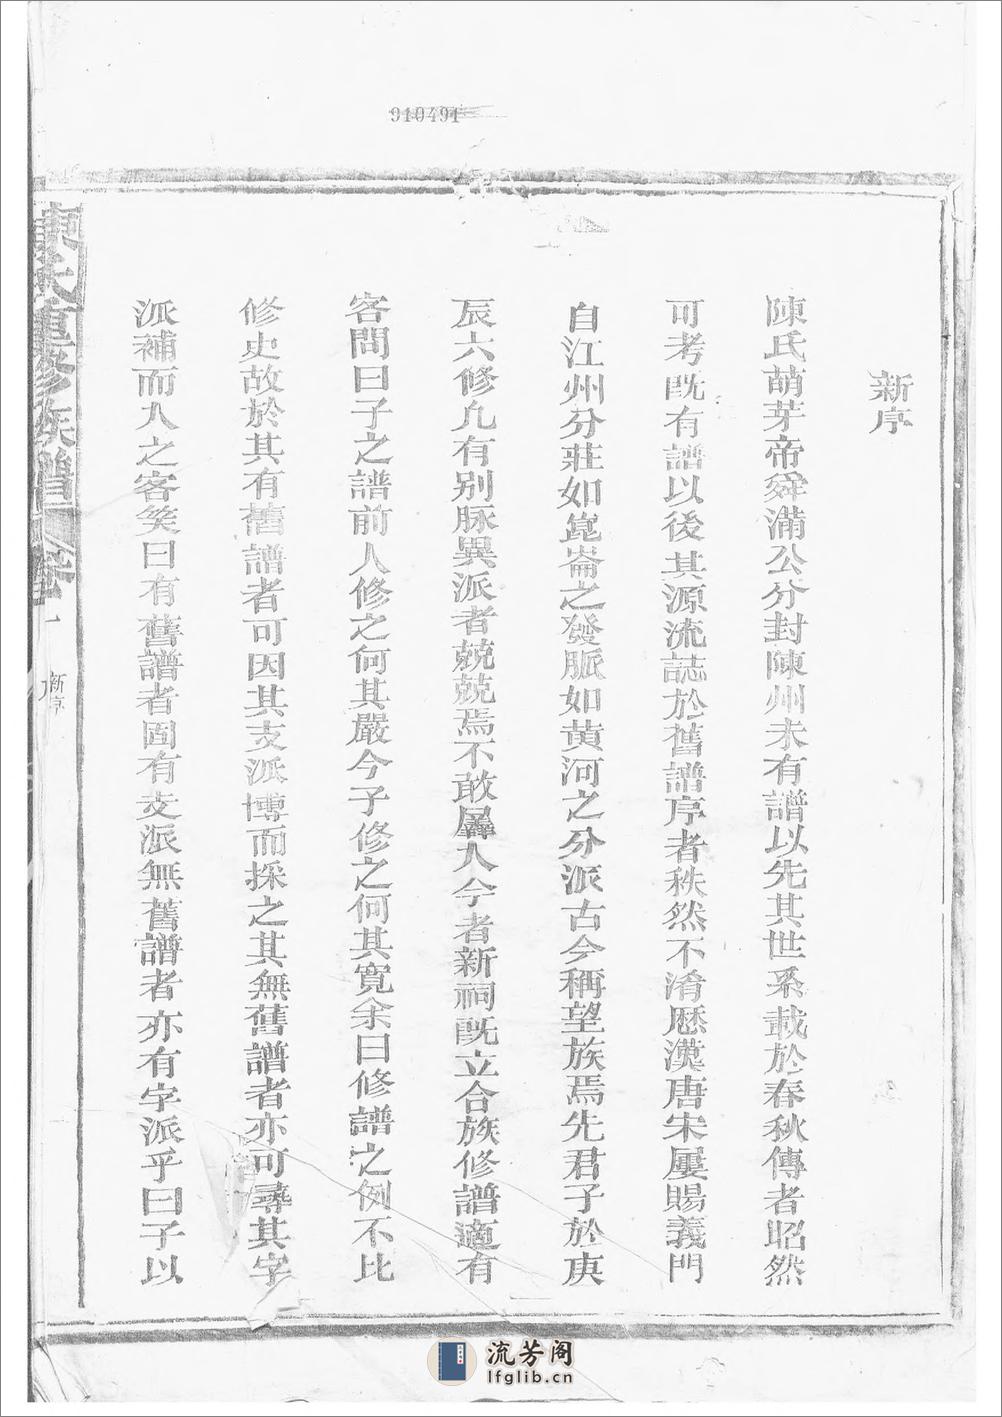 910491
新序
陳氏萌芽帝舜滿公分封陳州未有譜以先其世系載於春秋傳者昭然
可考既有譜以後其源流誌於舊譜序者秩然不淆歷漢唐宋屢賜義門
自江州分莊如崑崙之發脈如黄河之分派古今稱望族焉先君子於庚
辰六修凡有别脉異派者兢兢焉不敢羼人今者新祠既立合族修譜適有
客問曰子之譜前人修之何其嚴今子修之何其寛余曰修譜之例不比
修史故於其有舊譜者可因其支派博而採之其無舊譜者亦可尋其字
派補而人之客笑曰有舊譜者固有支派無舊譜者亦有字派乎曰子以
陳氏重修族譜 卷一
新序
流芳阁
lfglib.cn